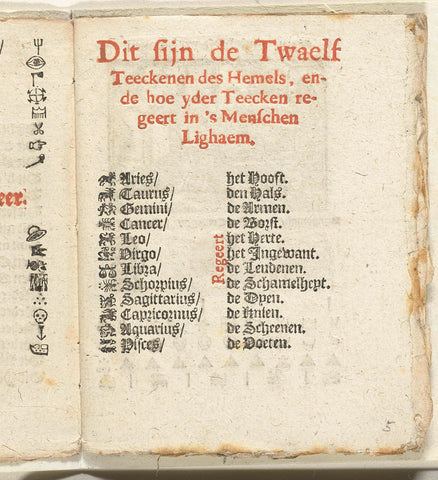 eer.
Dit sijn de Twaelf
Teeckenen des Hemels, en-
de hoe yder Teecken re-
geert in 's Menschen
Lighaem.
Aries/ het Hooft.
Taurus/ den Hals.
Gemini/ de Armen.
Cancer/ de Borst.
Leo/ het Herte.
Virgo/ het Ingewant.
Libra/ de Lendenen.
Schorpius/ de Schamelheyt.
Sagittarius/ de Dyen.
Capricornus/ de Knien.
Aquarius/ de Scheenen.
Pisces/ de Voeten.
Regeert